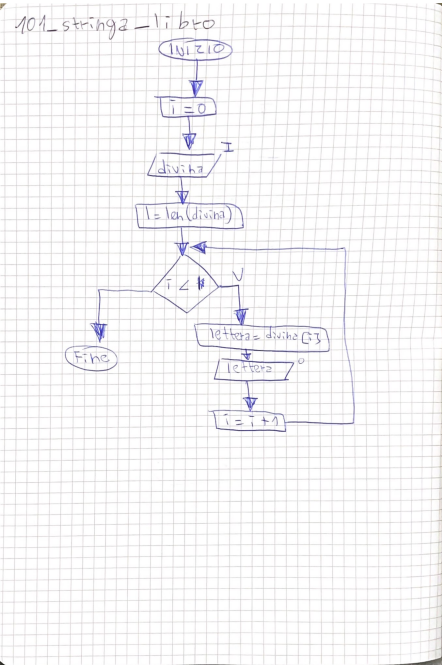 101_stringa_libro
INIZIO
i = 0
I
divina
l = len(divina)
i <
V
lettera = divina[i]
Fine
lettera
O
i = i + 1